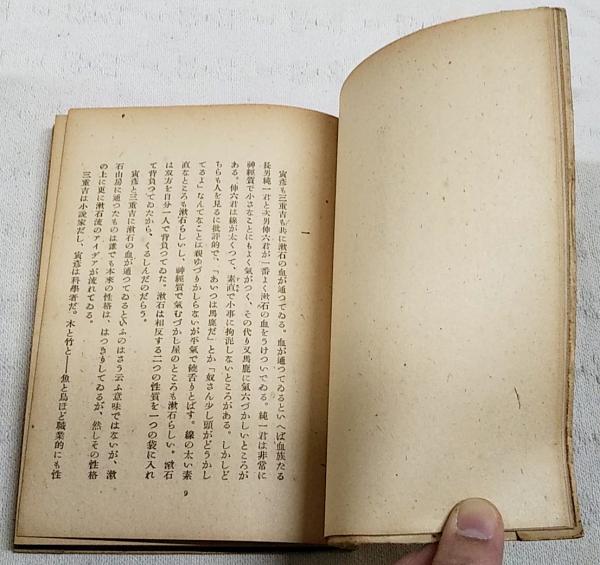 一
寅彦も三重吉も共に漱石の血が通つてゐる。血が通つてゐるといへば血族たる
長男純一君と次男伸六君が一番よく漱石の血をうけついでゐる。純一君は非常に
神經質で小さなことにもよく氣がつく、その代り又馬鹿に氣六づかしいところが
ある。伸六君は線が太くつて、素直で小事に拘泥しないところがある。しかしど
ちらも人を見るに批評的で、「あいつは馬鹿だ」とか「奴さん少し頭がどうかし
てるよ」なんてなことは親ゆづりかしらないが平氣で饒舌りとばす。線の太い素
直なところも漱石らしいし、神經質で氣むづかし屋のところも漱石らしい。漱石
は双方を自分一人で背負つてゐた。漱石は相反する二つの性質を一つの袋に入れ
て背負つてゐたから、くるしんだのだらう。
寅彦と三重吉に漱石の血が通つてゐるといふのはさう云ふ意味ではないが、漱
石山房に通つたものは誰でも本來の性格は、はつきりしてゐるが、然しその性格
の上に更に漱石流のアイデアが流れてゐる。
三重吉は小說家だし、寅彦は科學者だ。木と竹と──魚と鳥ほど職業的にも性
9